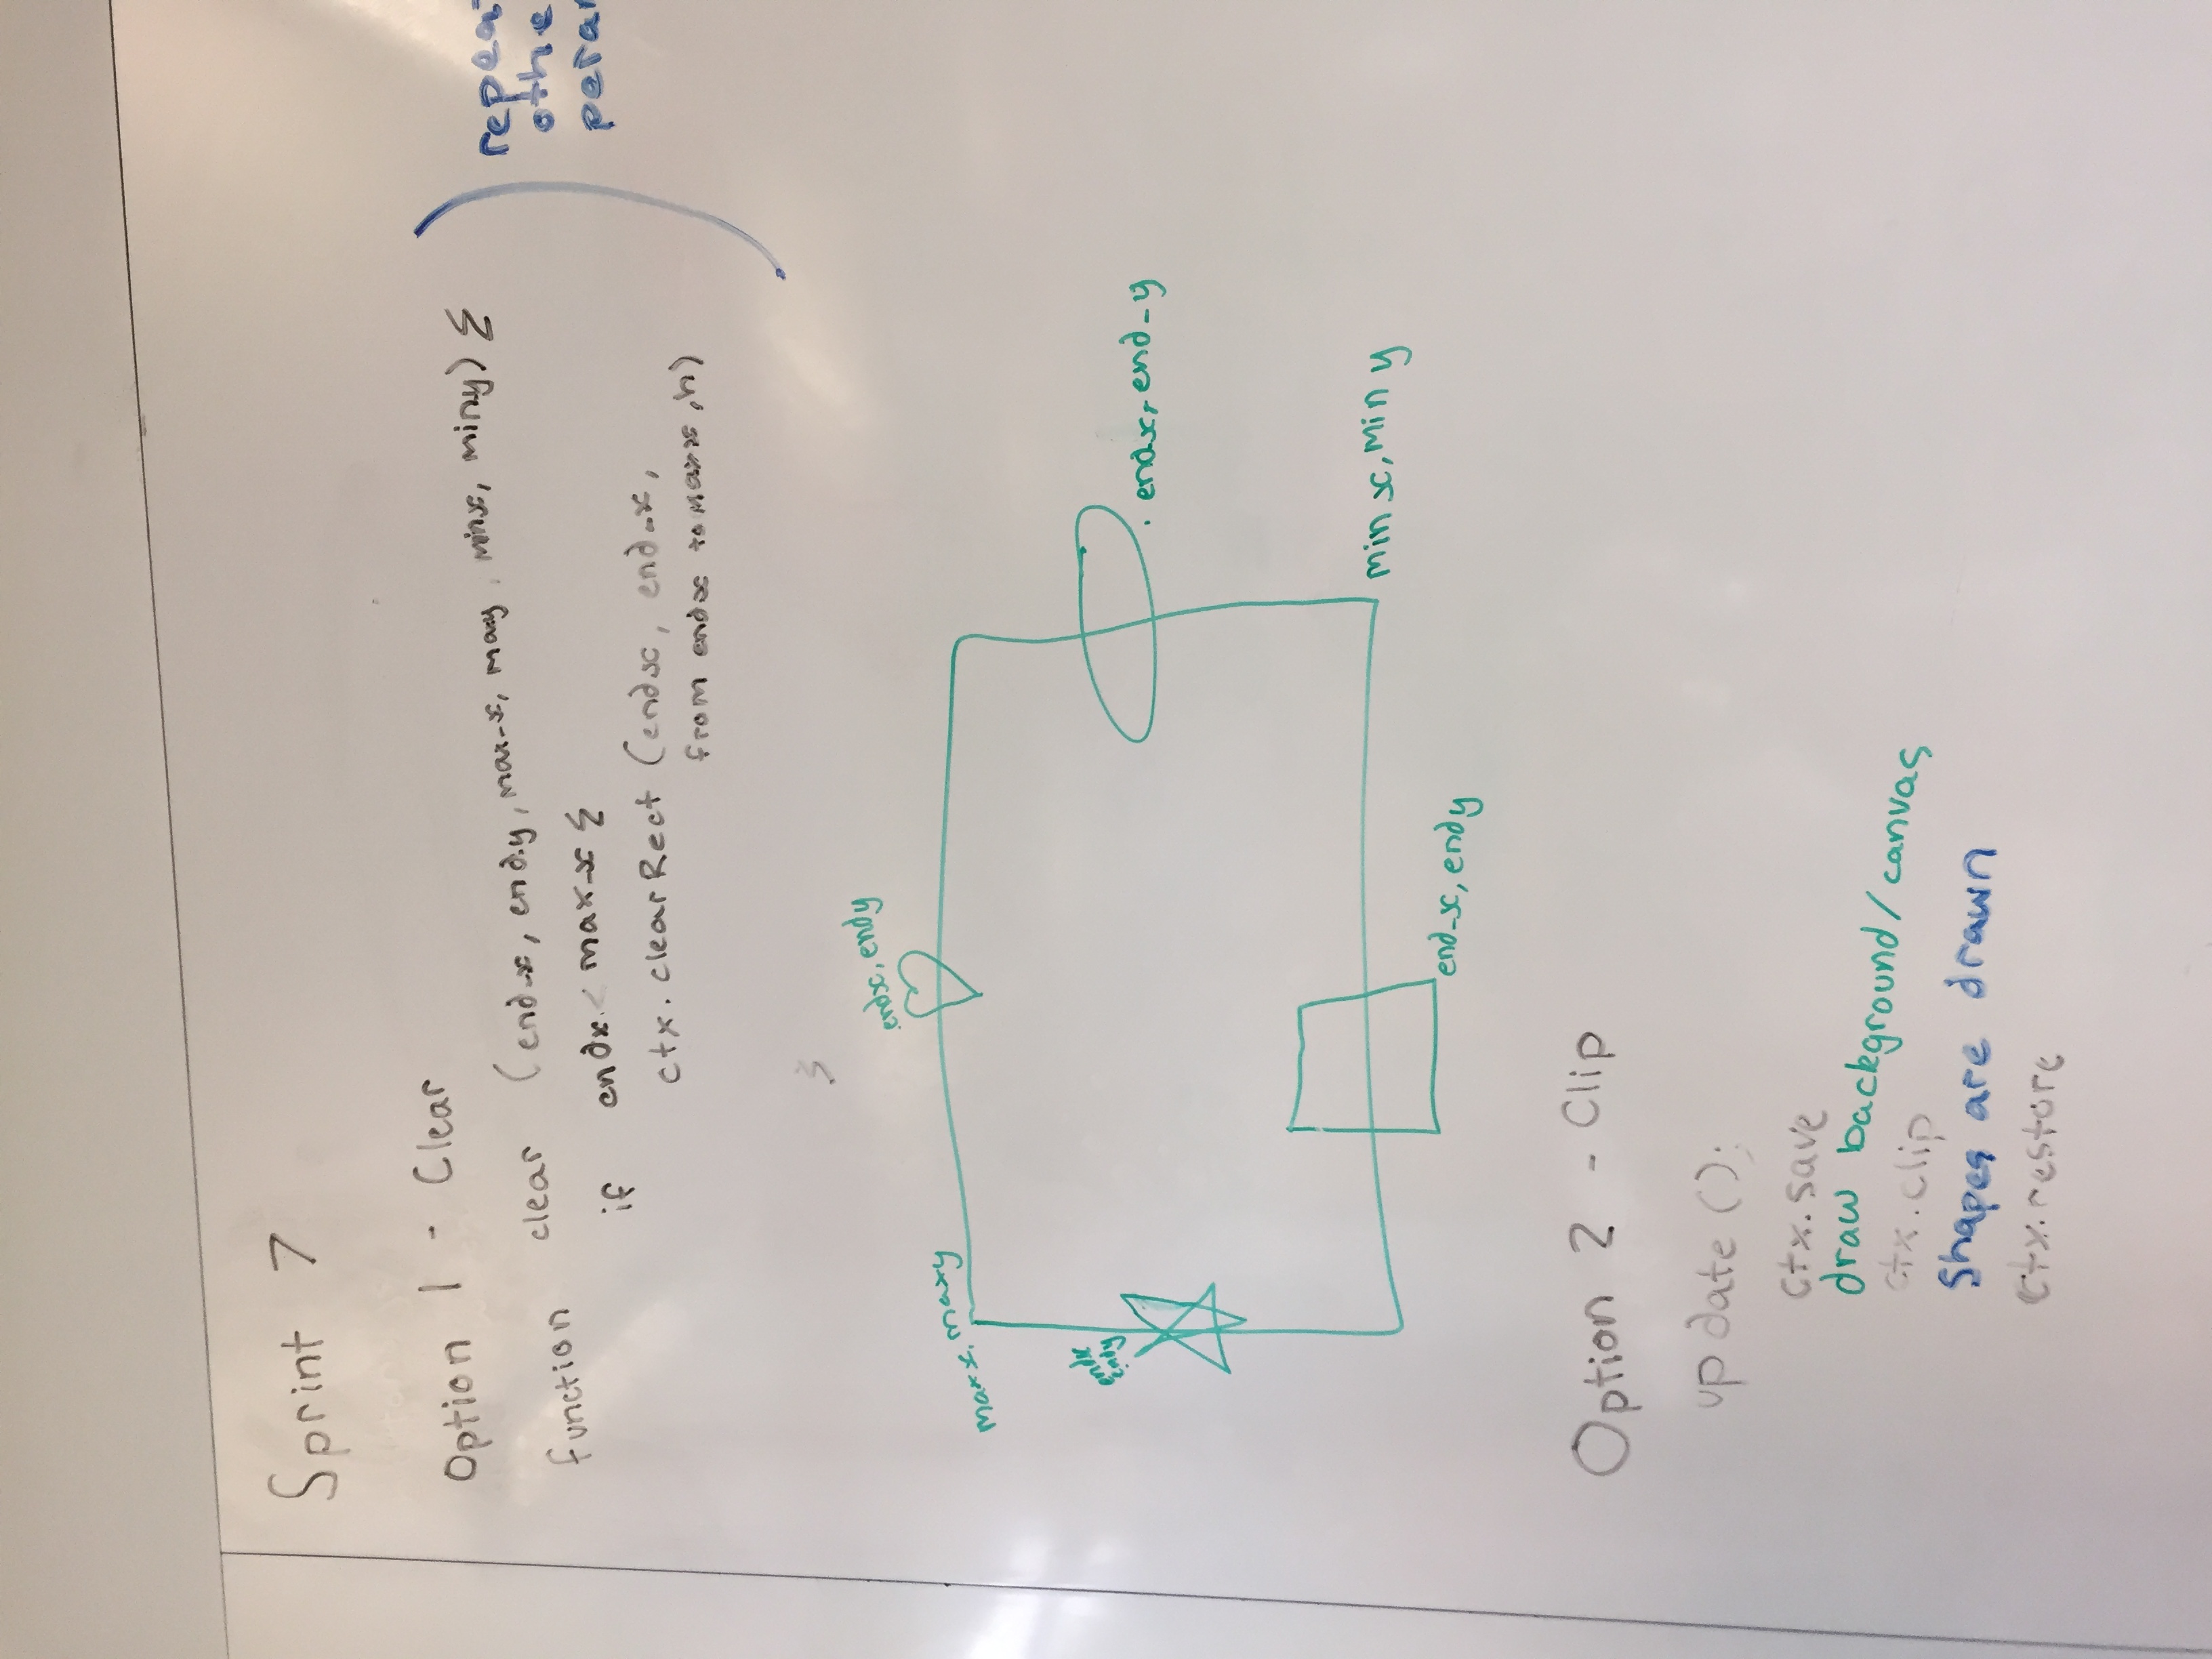 Sprint 7
Option 1 - Clear
function clear (end_x, end.y, max_x, maxy, minx, miny) {
if endx < max_x {
ctx.clearRect (endx, end_x,
from endx to maxx, h)
}
repea
othe
peran
endx, endy
maxx, maxy
endx
endy
endx, end_y
minx, min y
end_x, endy
Option 2 - Clip
update ();
ctx.save
draw background/canvas
ctx.clip
Shapes are drawn
ctx.restore